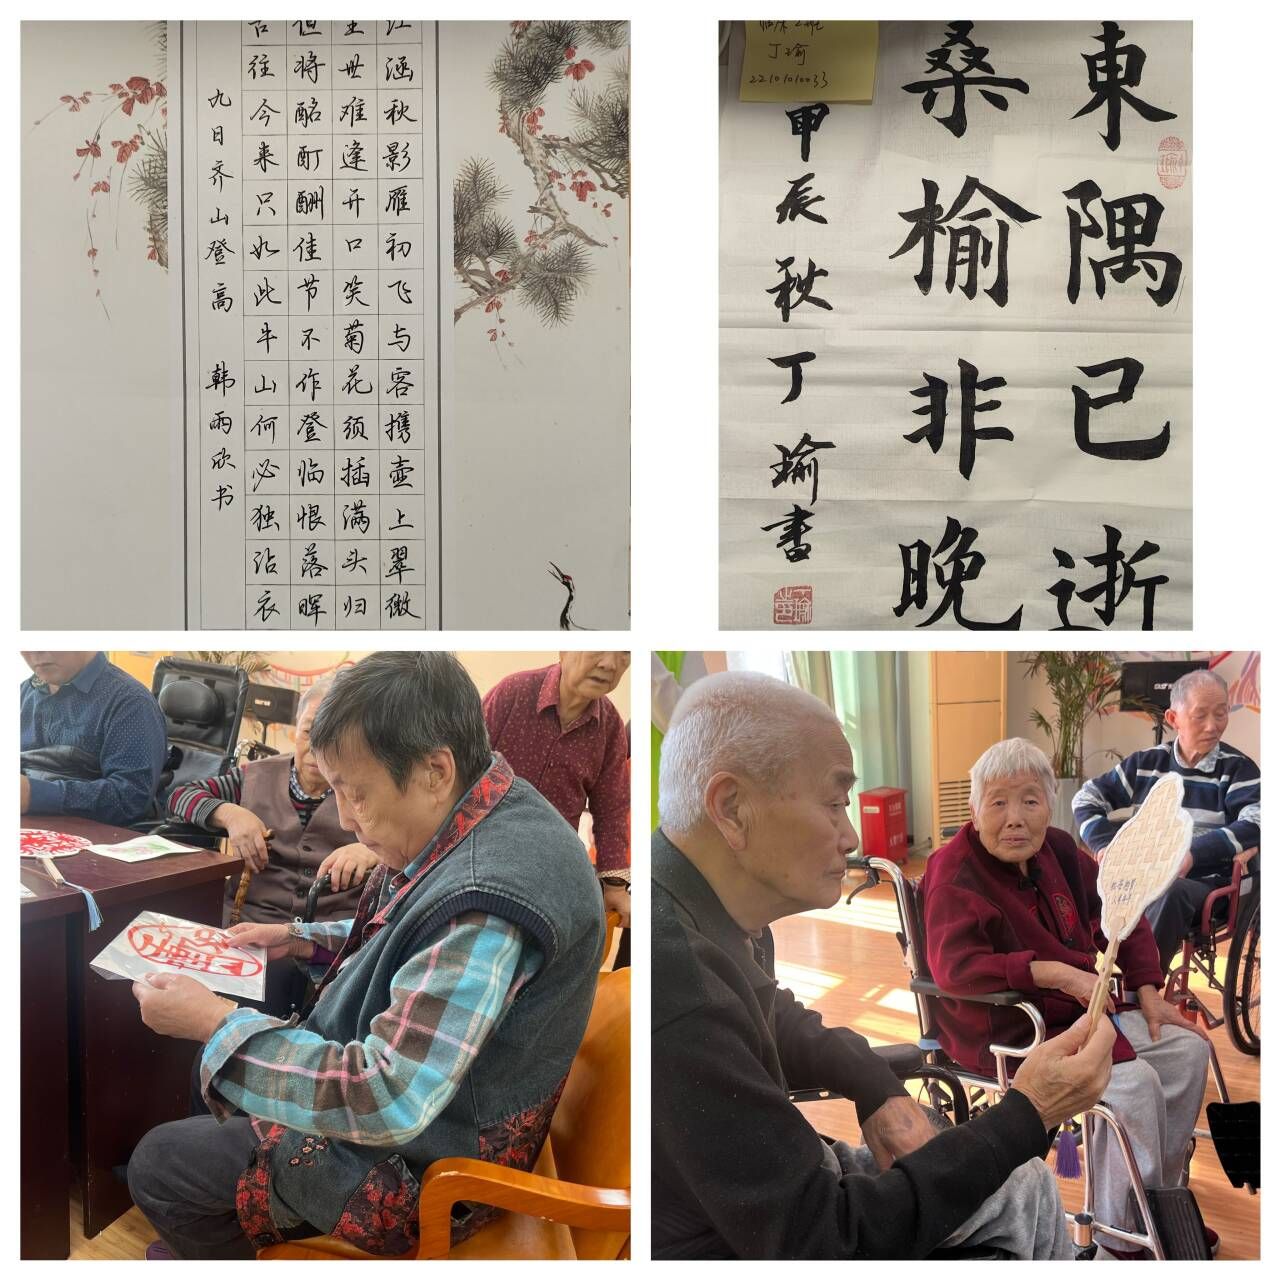 江涵秋影雁初飞与客携壶上翠微
尘世难逢开口笑菊花须插满头归
但将酩酊酬佳节不作登临恨落晖
古往今来只如此牛山何必独沾衣
九日齐山登高 韩雨欣书
丁瑜
東隅已逝
桑榆非晚
甲辰秋丁瑜書